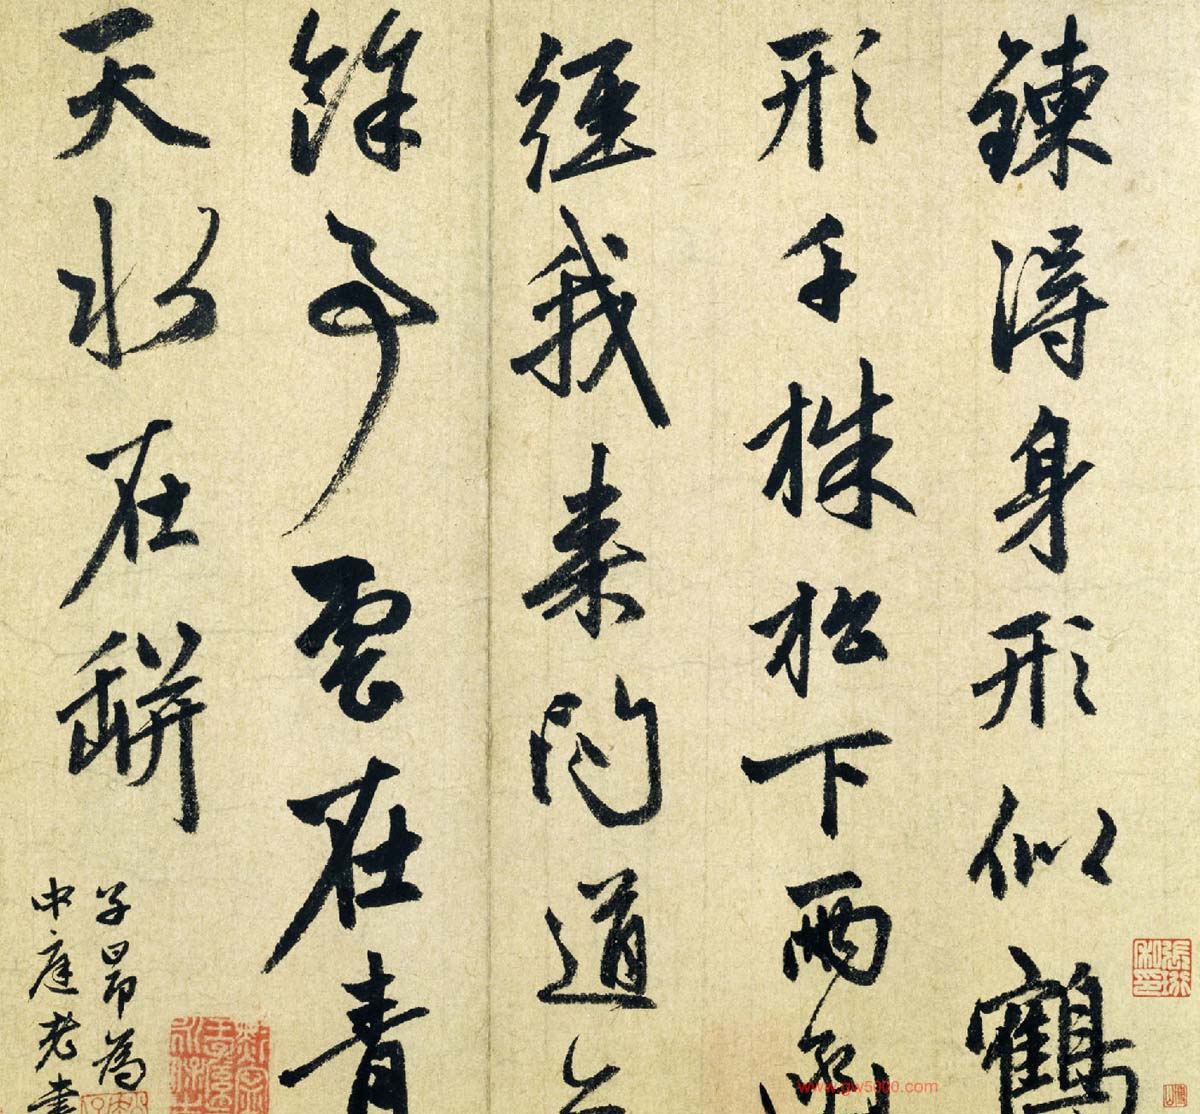 鍊得身形似鶴
形千株松下兩函
經我來問道無
餘事雲在青
天水在缾
子昂為
中庭老書
www.gw5000.com